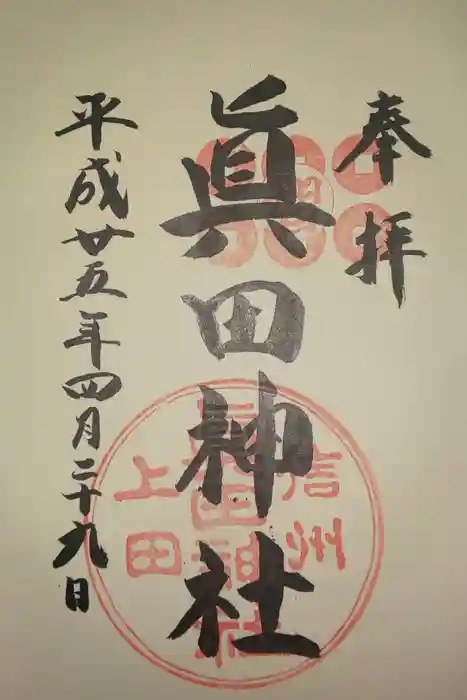 奉拝
眞田神社
平成廿五年四月二十九日
信州
眞田神社
上田